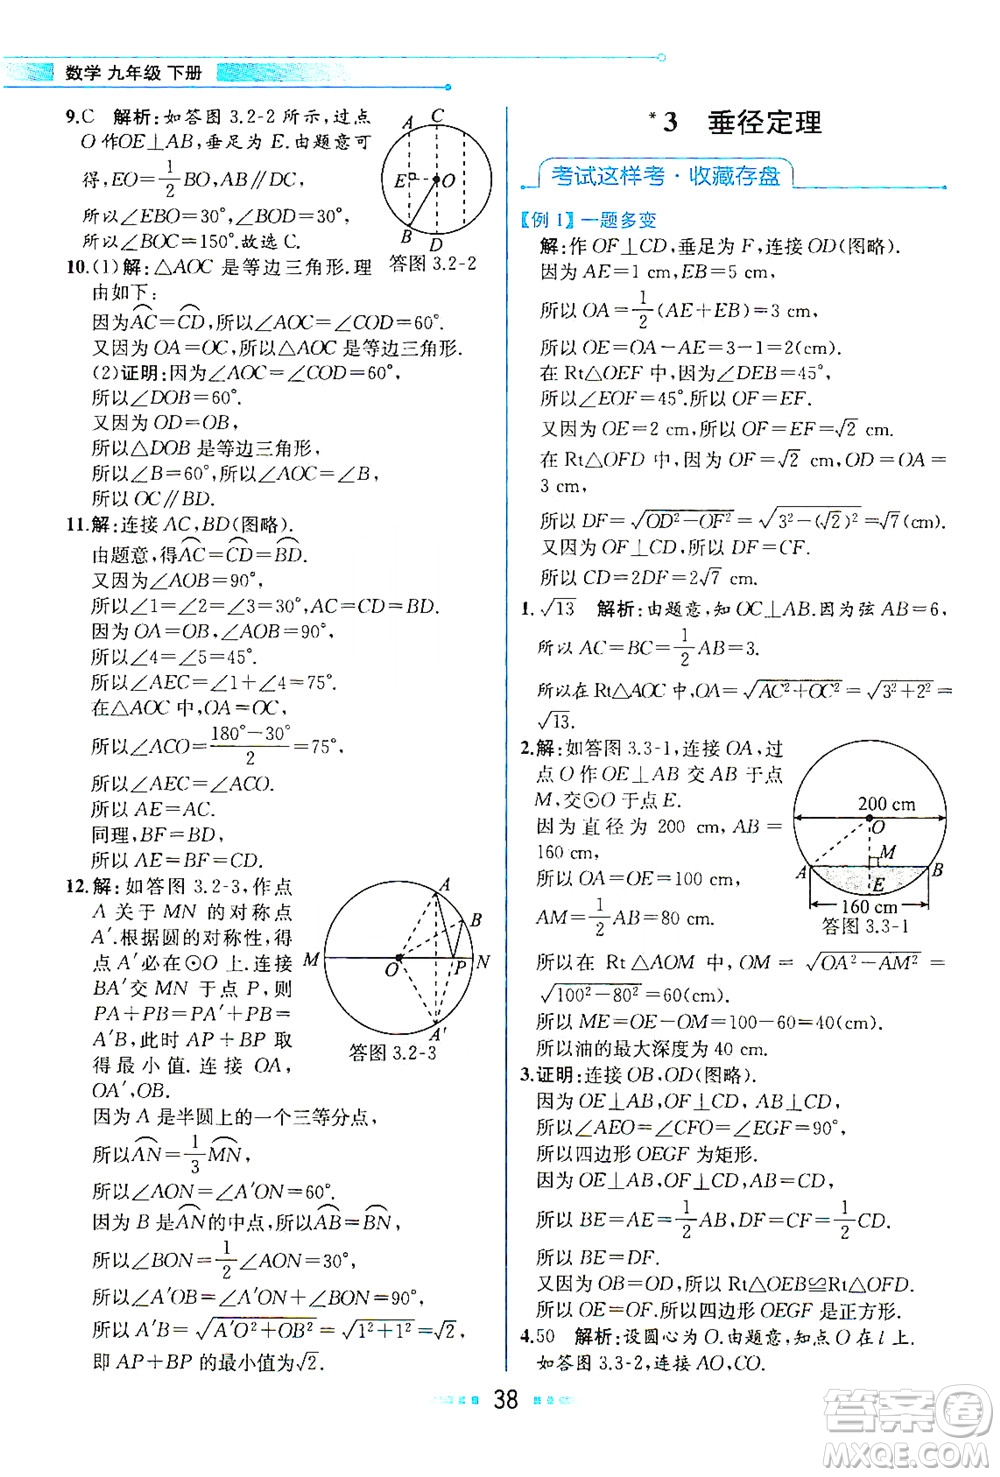 数学 九年级 下册
9.C 解析:如答图 3.2-2 所示,过点
O 作 OE⊥AB,垂足为 E.由题意可
得,EO=1/2BO,AB∥DC,
所以∠EBO=30°,∠BOD=30°,
所以∠BOC=150°.故选 C.
A C
E O
B D
答图 3.2-2
10.(1)解:△AOC 是等边三角形.理
由如下:
因为AC⌒=CD⌒,所以∠AOC=∠COD=60°.
又因为 OA=OC,所以△AOC 是等边三角形.
(2)证明:因为∠AOC=∠COD=60°,
所以∠DOB=60°.
又因为 OD=OB,
所以△DOB 是等边三角形,
所以∠B=60°,所以∠AOC=∠B,
所以 OC∥BD.
11.解:连接 AC,BD(图略).
由题意,得AC⌒=CD⌒=BD⌒.
又因为∠AOB=90°,
所以∠1=∠2=∠3=30°,AC=CD.
因为 OA=OB,∠AOB=90°,
所以∠4=∠5=45°.
所以∠AEC=∠1+∠4=75°.
在△AOC 中,OA=OC,
所以∠ACO=(180°-30°)/2=75°,
所以∠AEC=∠ACO.
所以 AE=AC.
同理,BF=BD,
所以 AE=BF=CD.
12.解:如答图 3.2-3,作点
A 关于 MN 的对称点
A′.根据圆的对称性,得
点 A′必在⊙O 上.连接
BA′交 MN 于点 P,则
PA+PB=PA′+PB=
A′B,此时 AP+BP 取
得最小值.连接 OA,
OA′,OB.
A
B
M O P N
A′
答图 3.2-3
因为 A 是半圆上的一个三等分点,
所以AN⌒=1/3MN⌒,
所以∠AON=∠A′ON=60°.
因为 B 是AN⌒的中点,所以AB⌒=BN⌒,
所以∠BON=1/2∠AON=30°,
所以∠A′OB=∠A′ON+∠BON=90°,
所以 A′B=√(A′O²+OB²)=√(1²+1²)=√2.
即 AP+BP 的最小值为√2.
*3 垂径定理
考试这样考·收藏存盘
【例 1】一题多变
解:作 OF⊥CD,垂足为 F,连接 OD(图略).
因为 AE=1 cm,EB=5 cm,
所以 OA=1/2(AE+EB)=3 cm,
所以 OE=OA-AE=3-1=2(cm).
在 Rt△OEF 中,因为∠DEB=45°,
所以∠EOF=45°.所以 OF=EF.
又因为 OE=2 cm,所以 OF=EF=√2 cm.
在 Rt△OFD 中,因为 OF=√2 cm,OD=OA=
3 cm,
所以 DF=√(OD²-OF²)=√(3²-(√2)²)=√7(cm).
又因为 OF⊥CD,所以 DF=CF.
所以 CD=2DF=2√7 cm.
1.√13 解析:由题意,知 OC⊥AB.因为弦 AB=6,
所以 AC=BC=1/2AB=3.
所以在 Rt△AOC 中,OA=√(AC²+OC²)=√(3²+2²)=
√13.
2.解:如答图 3.3-1,连接 OA,过
点 O 作 OE⊥AB 交 AB 于点
M,交⊙O 于点 E.
因为直径为 200 cm,AB=
160 cm,
所以 OA=OE=100 cm,
AM=1/2AB=80 cm.
200 cm
O
M
A B
E
160 cm
答图 3.3-1
所以在 Rt△AOM 中,OM=√(OA²-AM²)=
√(100²-80²)=60(cm),
所以 ME=OE-OM=100-60=40(cm).
所以油的最大深度为 40 cm.
3.证明:连接 OB,OD(图略).
因为 OE⊥AB,OF⊥CD,AB⊥CD,
所以∠AEO=∠CFO=∠EGF=90°,
所以四边形 OEGF 为矩形.
因为 OE⊥AB,OF⊥CD,AB=CD,
所以 BE=AE=1/2AB,DF=CF=1/2CD.
所以 BE=DF.
又因为 OB=OD,所以 Rt△OEB≌Rt△OFD.
所以 OE=OF.所以四边形 OEGF 是正方形.
4.50 解析:设圆心为 O.由题意,知点 O 在 l 上.
如答图 3.3-2,连接 AO,CO.
38
答案圈
MXQE.COM